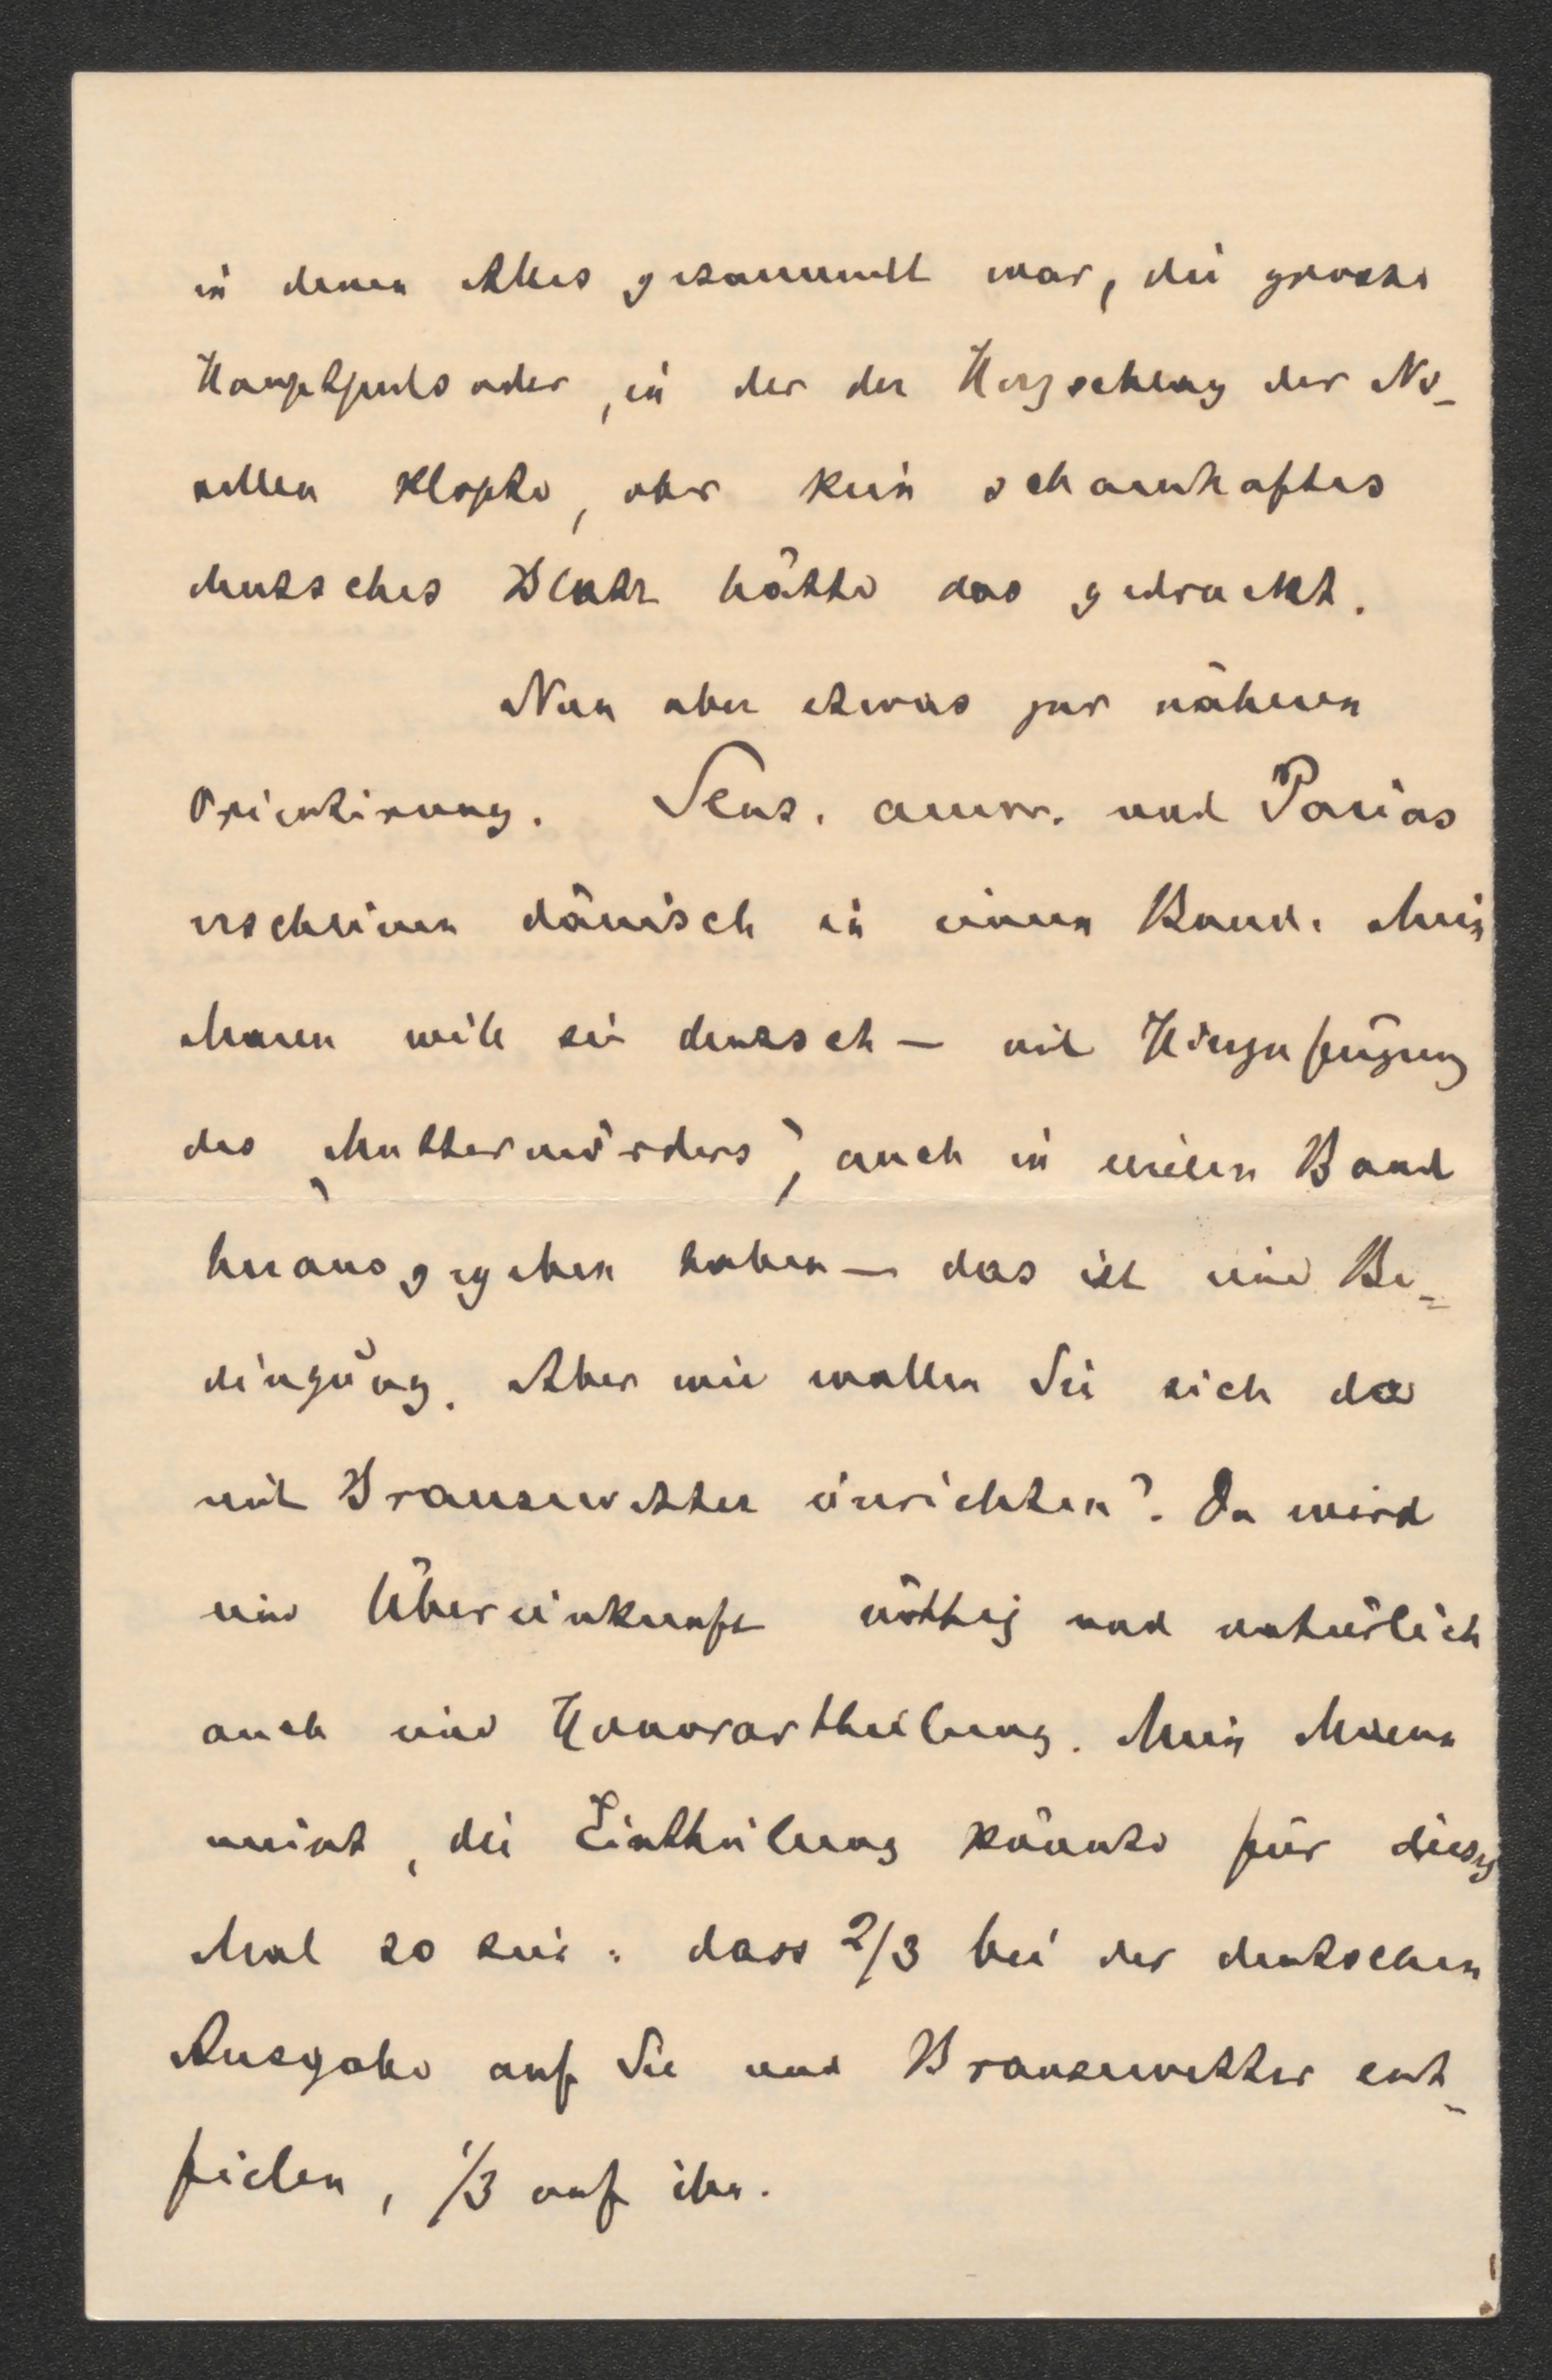 in denen Alles gesammelt war, die grosse
Hauptpulsader, in der der Herzschlag der No-
vellen klopfte, aber kein schamhaftes
deutsches Blatt hätte das gedruckt.
Nun aber etwas zur näheren
Orientirung. Sens. amer. und Parias
erscheinen dänisch in einem Band. Mein
Mann will sie deutsch – mit Hinzufügung
des „Muttermörders“, auch in einem Band
herausgegeben haben – das ist eine Be-
dingung. Aber wie wollen Sie sich da
mit Brausewetter einrichten? Da wird
eine Übereinkunft nöthig und natürlich
auch eine Honorartheilung. Mein Mann
meint, die Eintheilung könnte für dieses
Mal so sein: dass 2/3 bei der deutschen
Ausgabe auf Sie und Brausewetter ent-
fielen, 1/3 auf ihn.